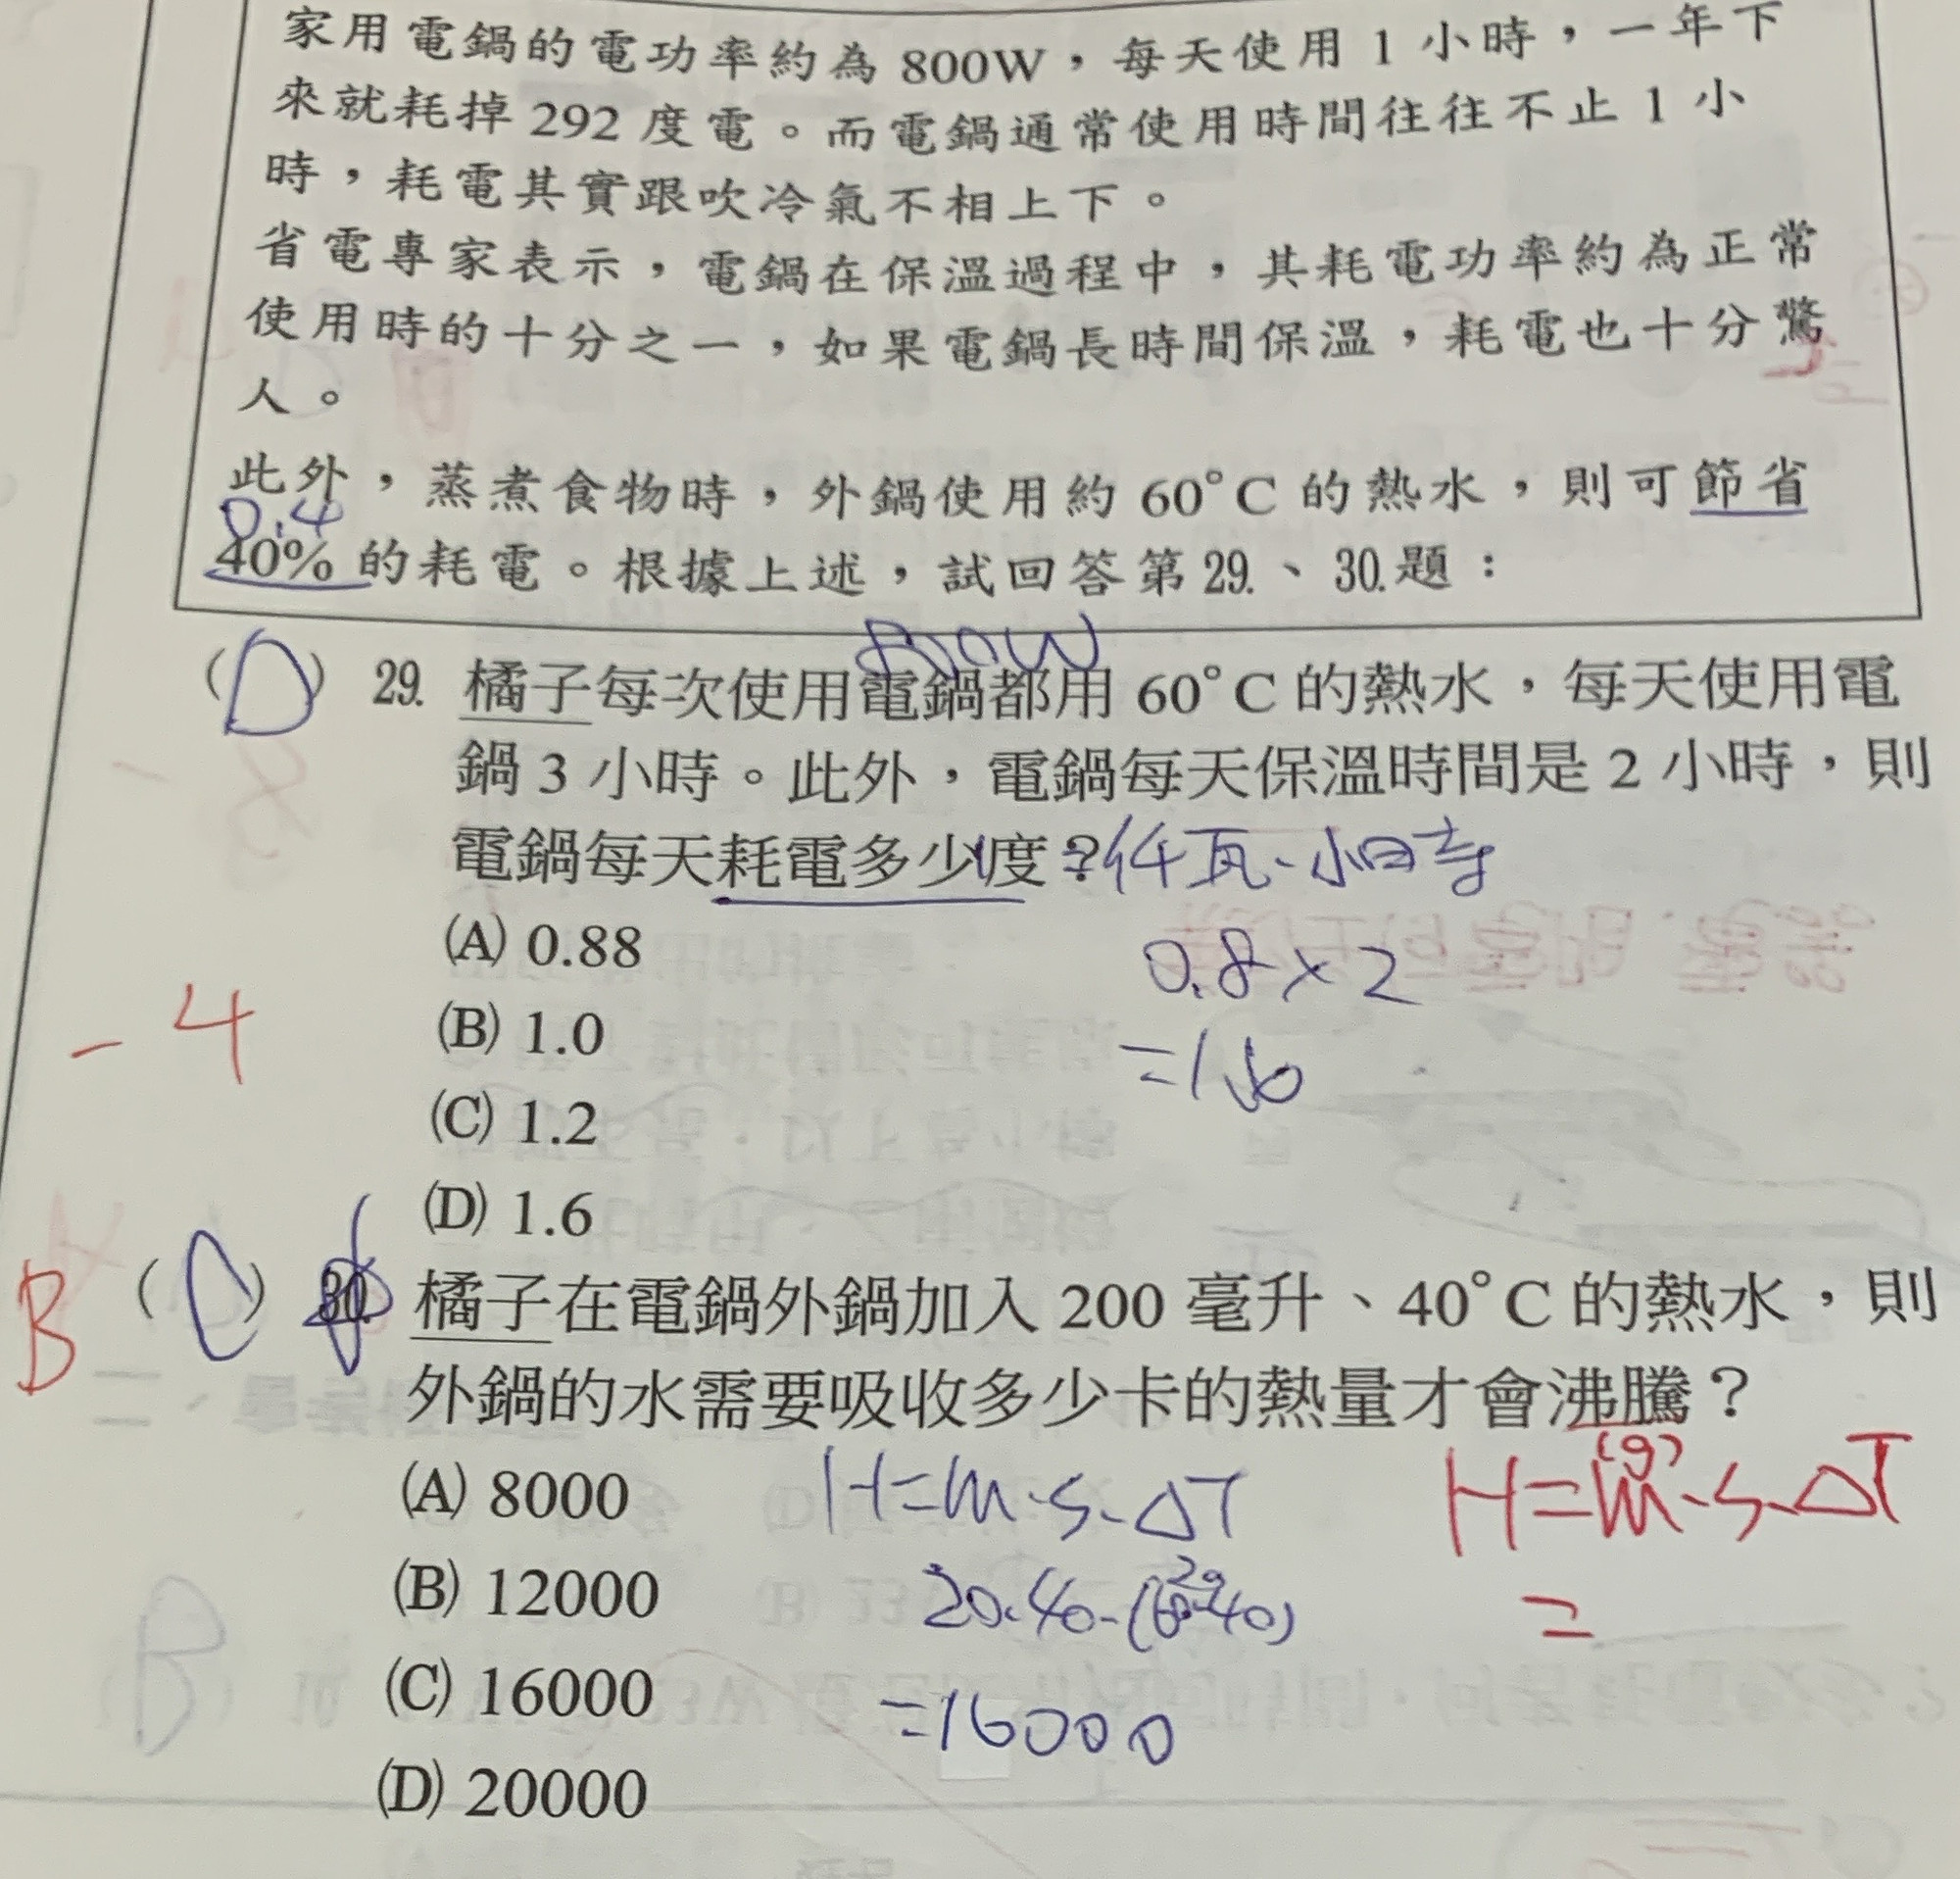 家用電鍋的電功率約為 800W，每天使用 1 小時，一年下
來就耗掉 292 度電。而電鍋通常使用時間往往不止 1 小
時，耗電其實跟吹冷氣不相上下。
省電專家表示，電鍋在保溫過程中，其耗電功率約為正常
使用時的十分之一，如果電鍋長時間保溫，耗電也十分驚
人。
此外，蒸煮食物時，外鍋使用約 60°C 的熱水，則可節省
0.4
40% 的耗電。根據上述，試回答第 29.、30.題：
800W
(D) 29. 橘子每次使用電鍋都用 60°C 的熱水，每天使用電
鍋 3 小時。此外，電鍋每天保溫時間是 2 小時，則
電鍋每天耗電多少度？仟瓦-小時
(A) 0.88
0.8×2
(B) 1.0
=1.6
-4
(C) 1.2
(D) 1.6
B (C) 30. 橘子在電鍋外鍋加入 200 毫升、40°C 的熱水，則
外鍋的水需要吸收多少卡的熱量才會沸騰？
(A) 8000
H=m·s·ΔT
(g)
H=m·s·ΔT
(B) 12000
20·40·(60-40)
=
(C) 16000
=16000
(D) 20000